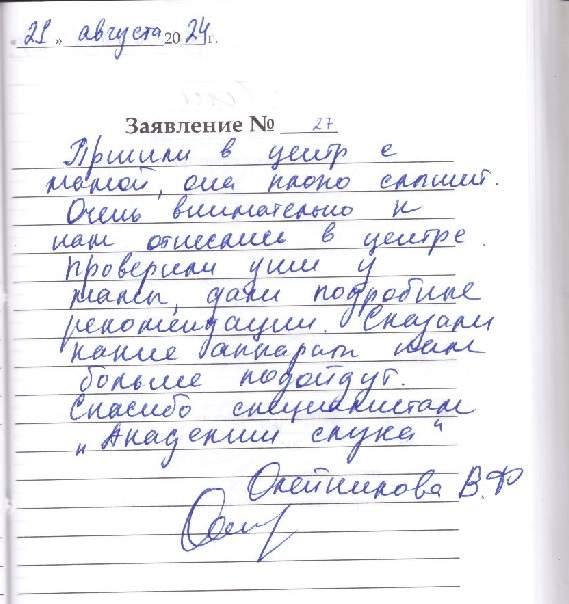 21 » августа 2024г.
Заявление № 27
Пришли в центр с
мамой, она плохо слышит.
Очень внимательно к
нам отнеслись в центре.
проверили уши у
мамы, дали подробные
рекомендации. Сказали
какие аппараты нам
больше подойдут.
Спасибо специалистам
„Академии слуха“
Олейникова В.Ф